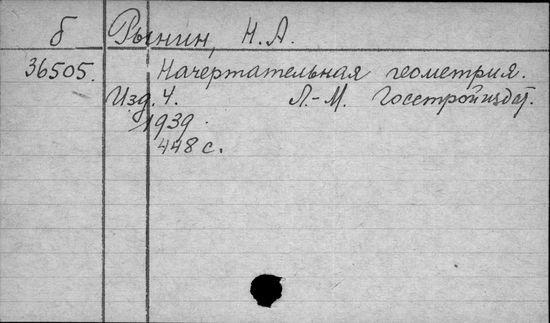 б Рынин, Н.А.
36505. Начертательная геометрия.
Изд. 4. Л.-М. Госстройиздат.
1939.
448 с.